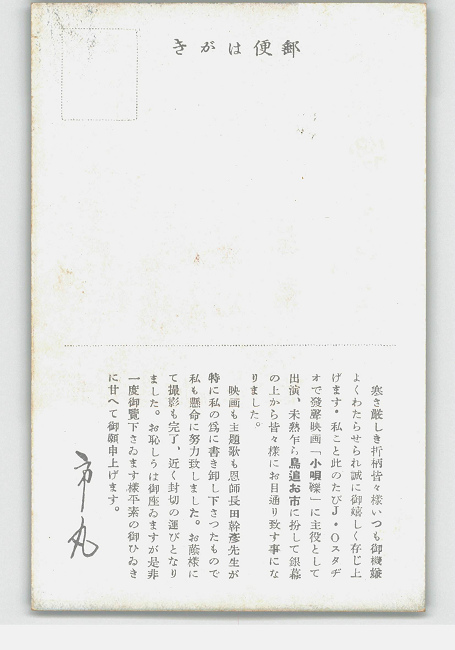 きがは便郵
寒さ嚴しき折柄皆々様いつも御機嫌
よくわたらせられ誠に御嬉しく存じ上
げます。私こと此のたびJ・Oスタヂ
オで發聲映画「小唄礫」に主役として
出演、未熟乍ら鳥追お市に扮して銀幕
の上から皆々様にお目通り致す事にな
りました。
映画も主題歌も恩師長田幹彦先生が
特に私の爲に書き卸し下さつたもので
私も懸命に努力致しました。お蔭様に
て撮影も完了、近く封切の運びとなり
ました。お恥しうは御座ゐますが是非
一度御覽下さゐます樣平素の御ひゐき
に甘へて御願申上げます。
市丸